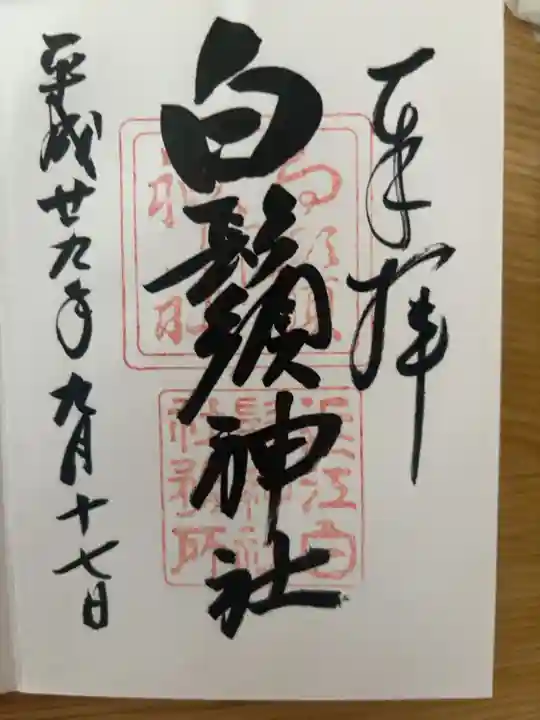 奉拝
白鬚神社
平成廿九年九月十七日
近江白
鬚神社
社務所